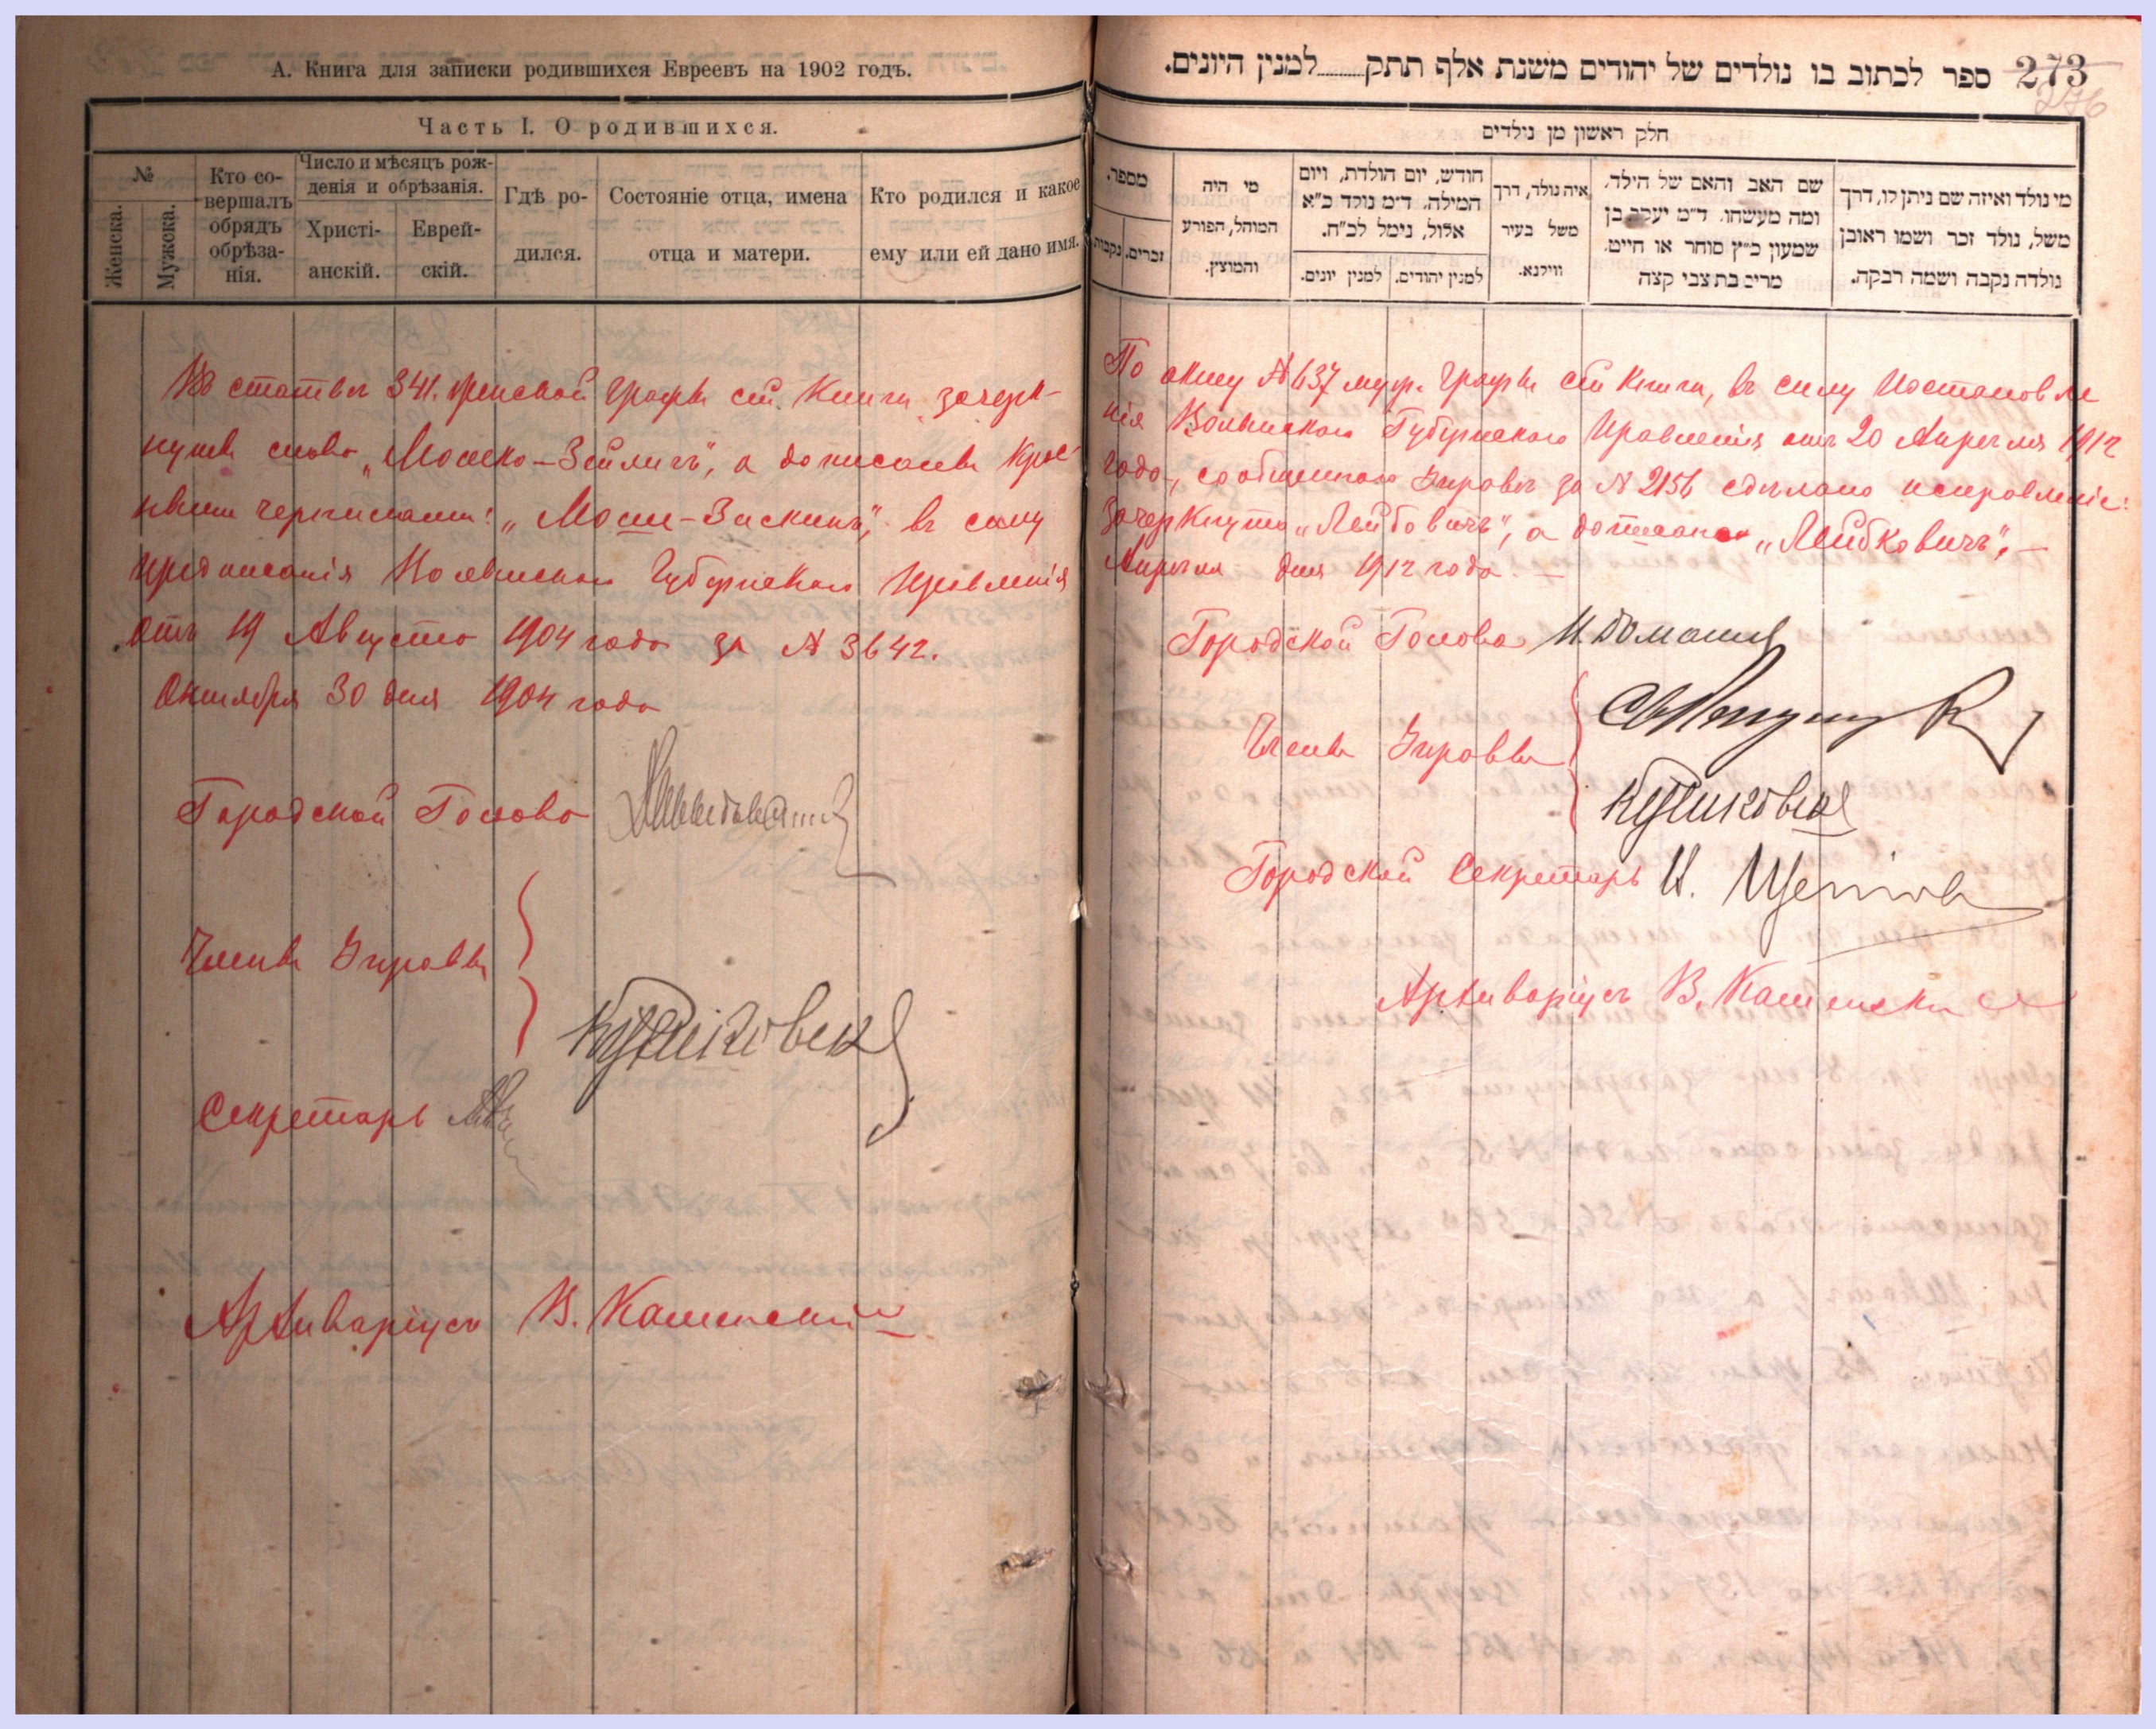 А. Книга для записки родившихся Евреевъ на 1902 годъ.
Часть I. О родившихся.
№
Женска.
Мужска.
Кто со-
вершалъ
обрядъ
обрѣза-
нія.
Число и мѣсяцъ рож-
денія и обрѣзанія.
Христі-
анскій.
Еврей-
скій.
Гдѣ ро-
дился.
Состояніе отца, имена
отца и матери.
Кто родился и какое
ему или ей дано имя.
Въ статьѣ 341. женской графы сей Книги зачерк-
нуты слова „Мошко-Зейлигъ", а дописаны крас-
ными чернилами: „Моши-Зискинъ", въ силу
предписанія Волынскаго Губернскаго Правленія
отъ 19 Августа 1904 года за № 3642.
Октября 30 дня 1904 года
Городской Голова
Члены Управы
Секретарь
Архиваріусъ В. Каменскій
273
ספר לכתוב בו נולדים של יהודים משנת אלף תתק......למנין היונים.
חלק ראשון מן נולדים
מספר.
זכרים.
נקבות
מי היה
המוהל, הפורע
והמוצץ.
חודש, יום הולדת, ויום
המילה. ד״מ נולד כ״א
אלול, נימל לכ״ח.
למנין יהודים.
למנין יונים.
איה נולד, דרך
משל בעיר
ווילנא.
שם האב והאם של הילד,
ומה מעשהו. ד״מ יעקב בן
שמעון כ״ץ סוחר או חייט.
מרים בת צבי קצה
מי נולד ואיזה שם ניתן לו, דרך
משל, נולד זכר ושמו ראובן
נולדה נקבה ושמה רבקה.
По акту № 637 муж. графы сей книги, въ силу Постановле
нія Волынскаго Губернскаго Правленія отъ 20 Апрѣля 1912
года, сообщеннаго Управѣ за № 2156 сдѣлано исправленіе:
зачеркнуто „Лейбовичъ", а дописано „Лейбковичъ". —
Апрѣля дня 1912 года. —
Городской Голова
Члены Управы
Городской Секретарь
Архиваріусъ В. Каменскій